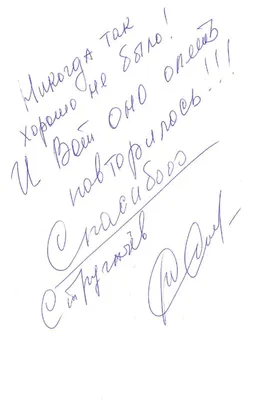 Никогда так
хорошо не было!
И вот оно опять
повторилось!!!
Спасибооо